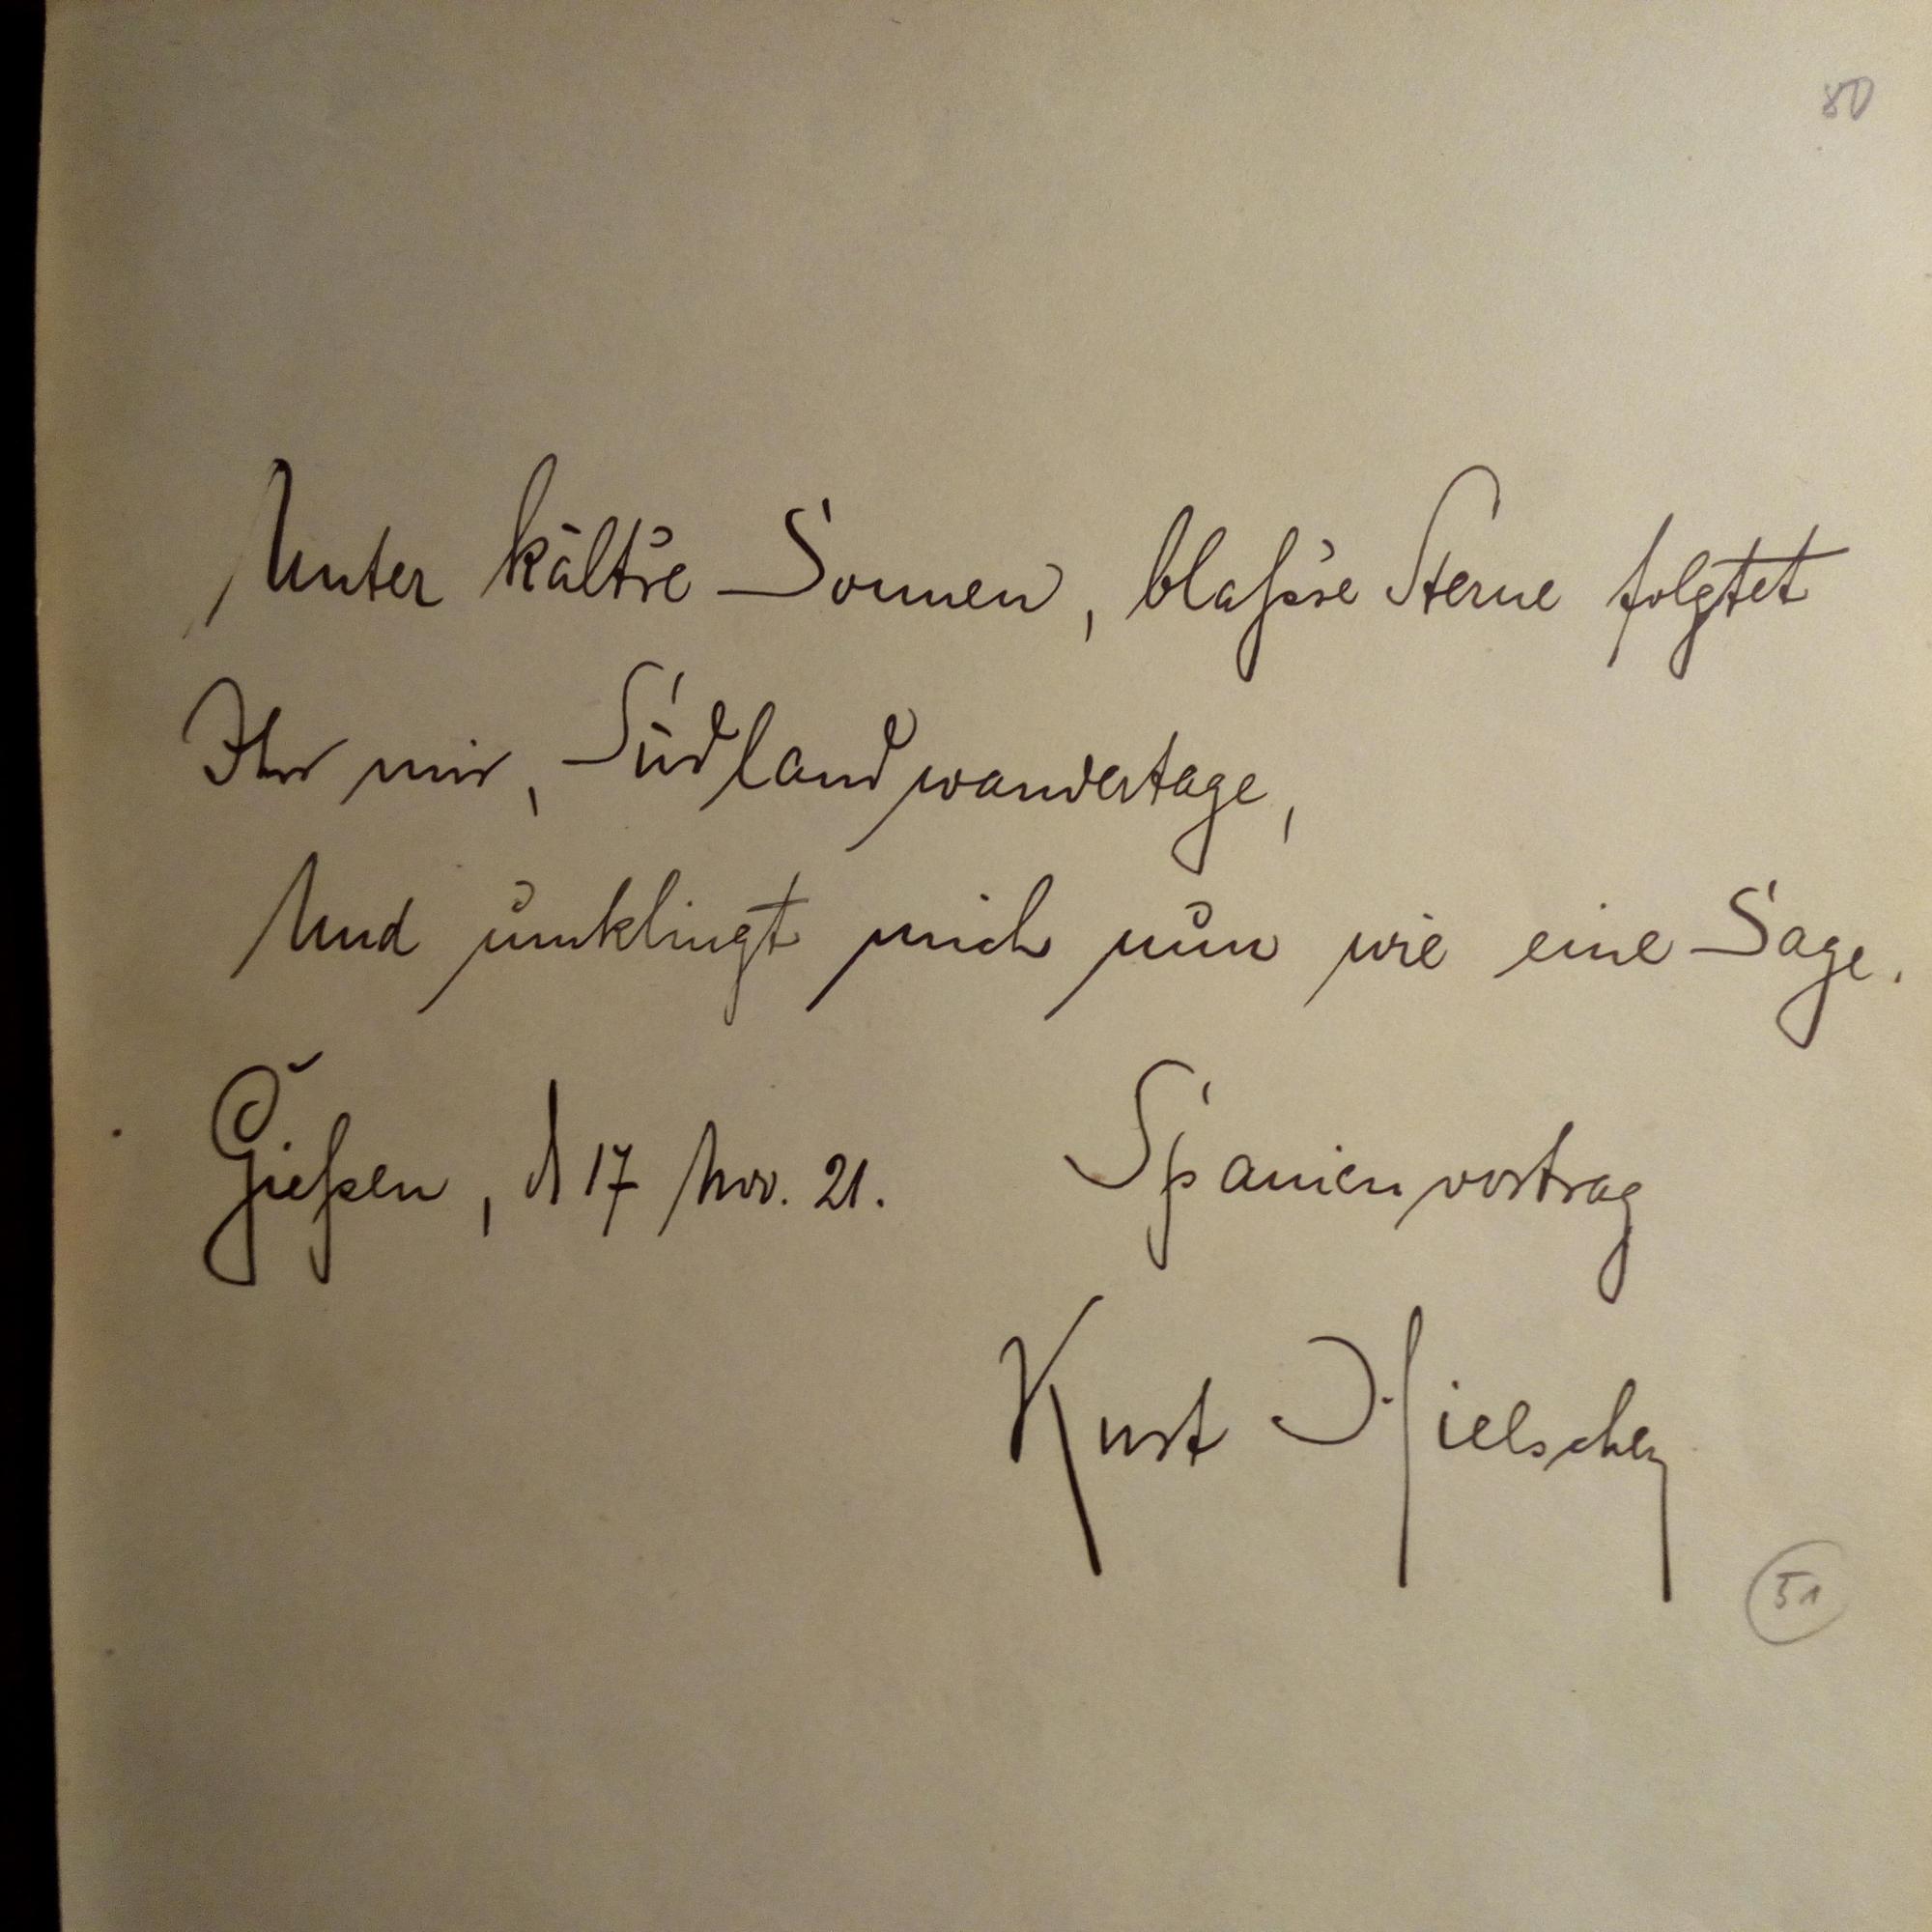 80
Unter kält're Sonnen, blaß're Sterne folgtet
Ihr mir, Südlandwandertage,
Und umklingt mich nun wie eine Sage.
Gießen, d 17 Nov. 21. Spanienvortrag
Kurt Hielscher
51